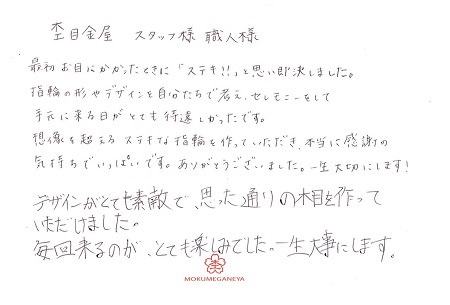 杢目金屋 スタッフ様 職人様
最初お目にかかったときに「ステキ!!」と思い即決しました。
指輪の形やデザインを自分たちで考え、セレモニーをして
手元に来る日がとても待遠しかったです。
想像を超えるステキな指輪を作っていただき、本当に感謝の
気持ちでいっぱいです。ありがとうございました。一生大切にします!
デザインがとても素敵で、思った通りの木目を作って
いただけました。
毎回来るのが、とても楽しみでした。一生大事にします。
MOKUMEGANEYA